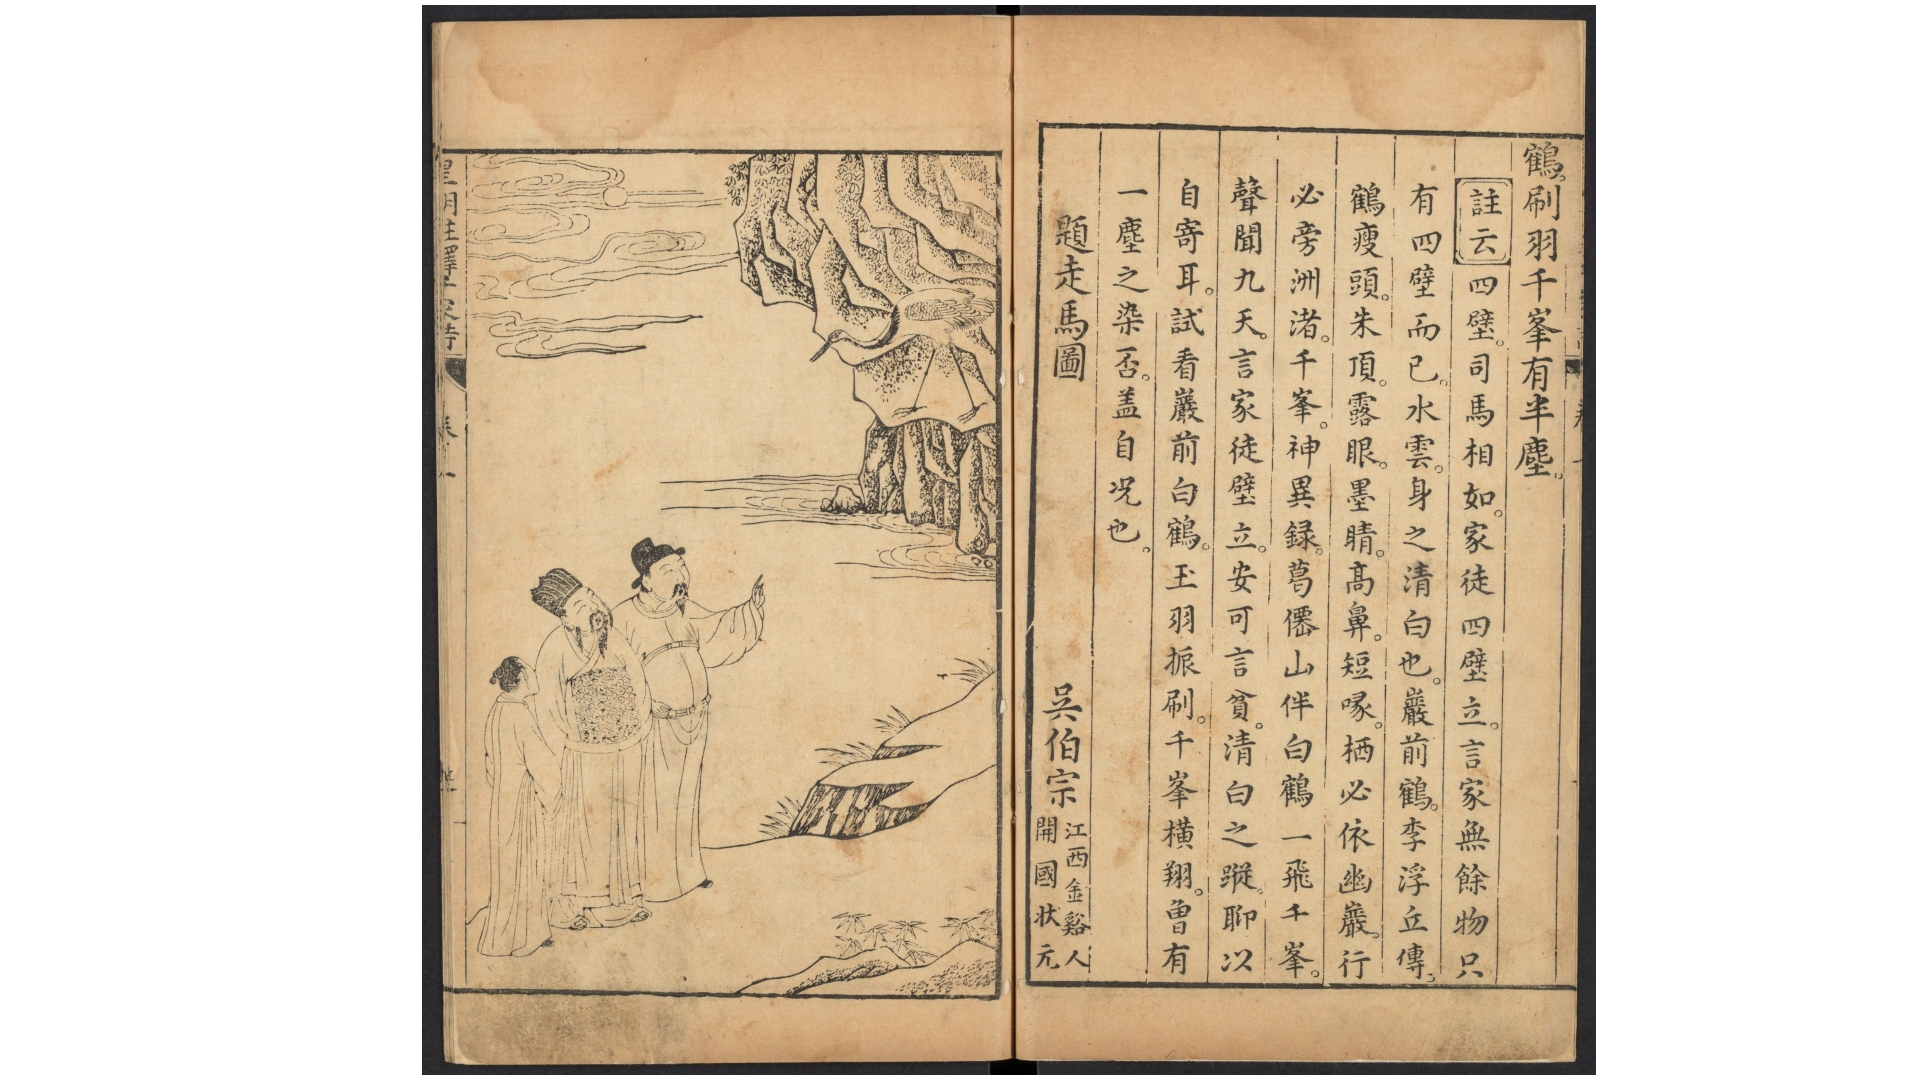 鶴。刷羽千峯有半塵。
註云四壁。司馬相如。家徒四壁立。言家無餘物只
有四壁而已。水雲。身之清白也。巖前鶴。李浮丘傳。
鶴瘦頭。朱頂。露眼。墨睛。高鼻。短喙。栖必依幽巖。行
必旁洲渚。千峯。神異録。葛僊山伴白鶴一飛千峯。
聲聞九天。言家徒壁立。安可言貧。清白之蹤。聊以
自寄耳。試看巖前白鶴。玉羽振刷。千峯橫翔。曽有
一塵之染否。盖自况也。
題走馬圖
吳伯宗
江西金谿人
開國狀元
皇明註釋